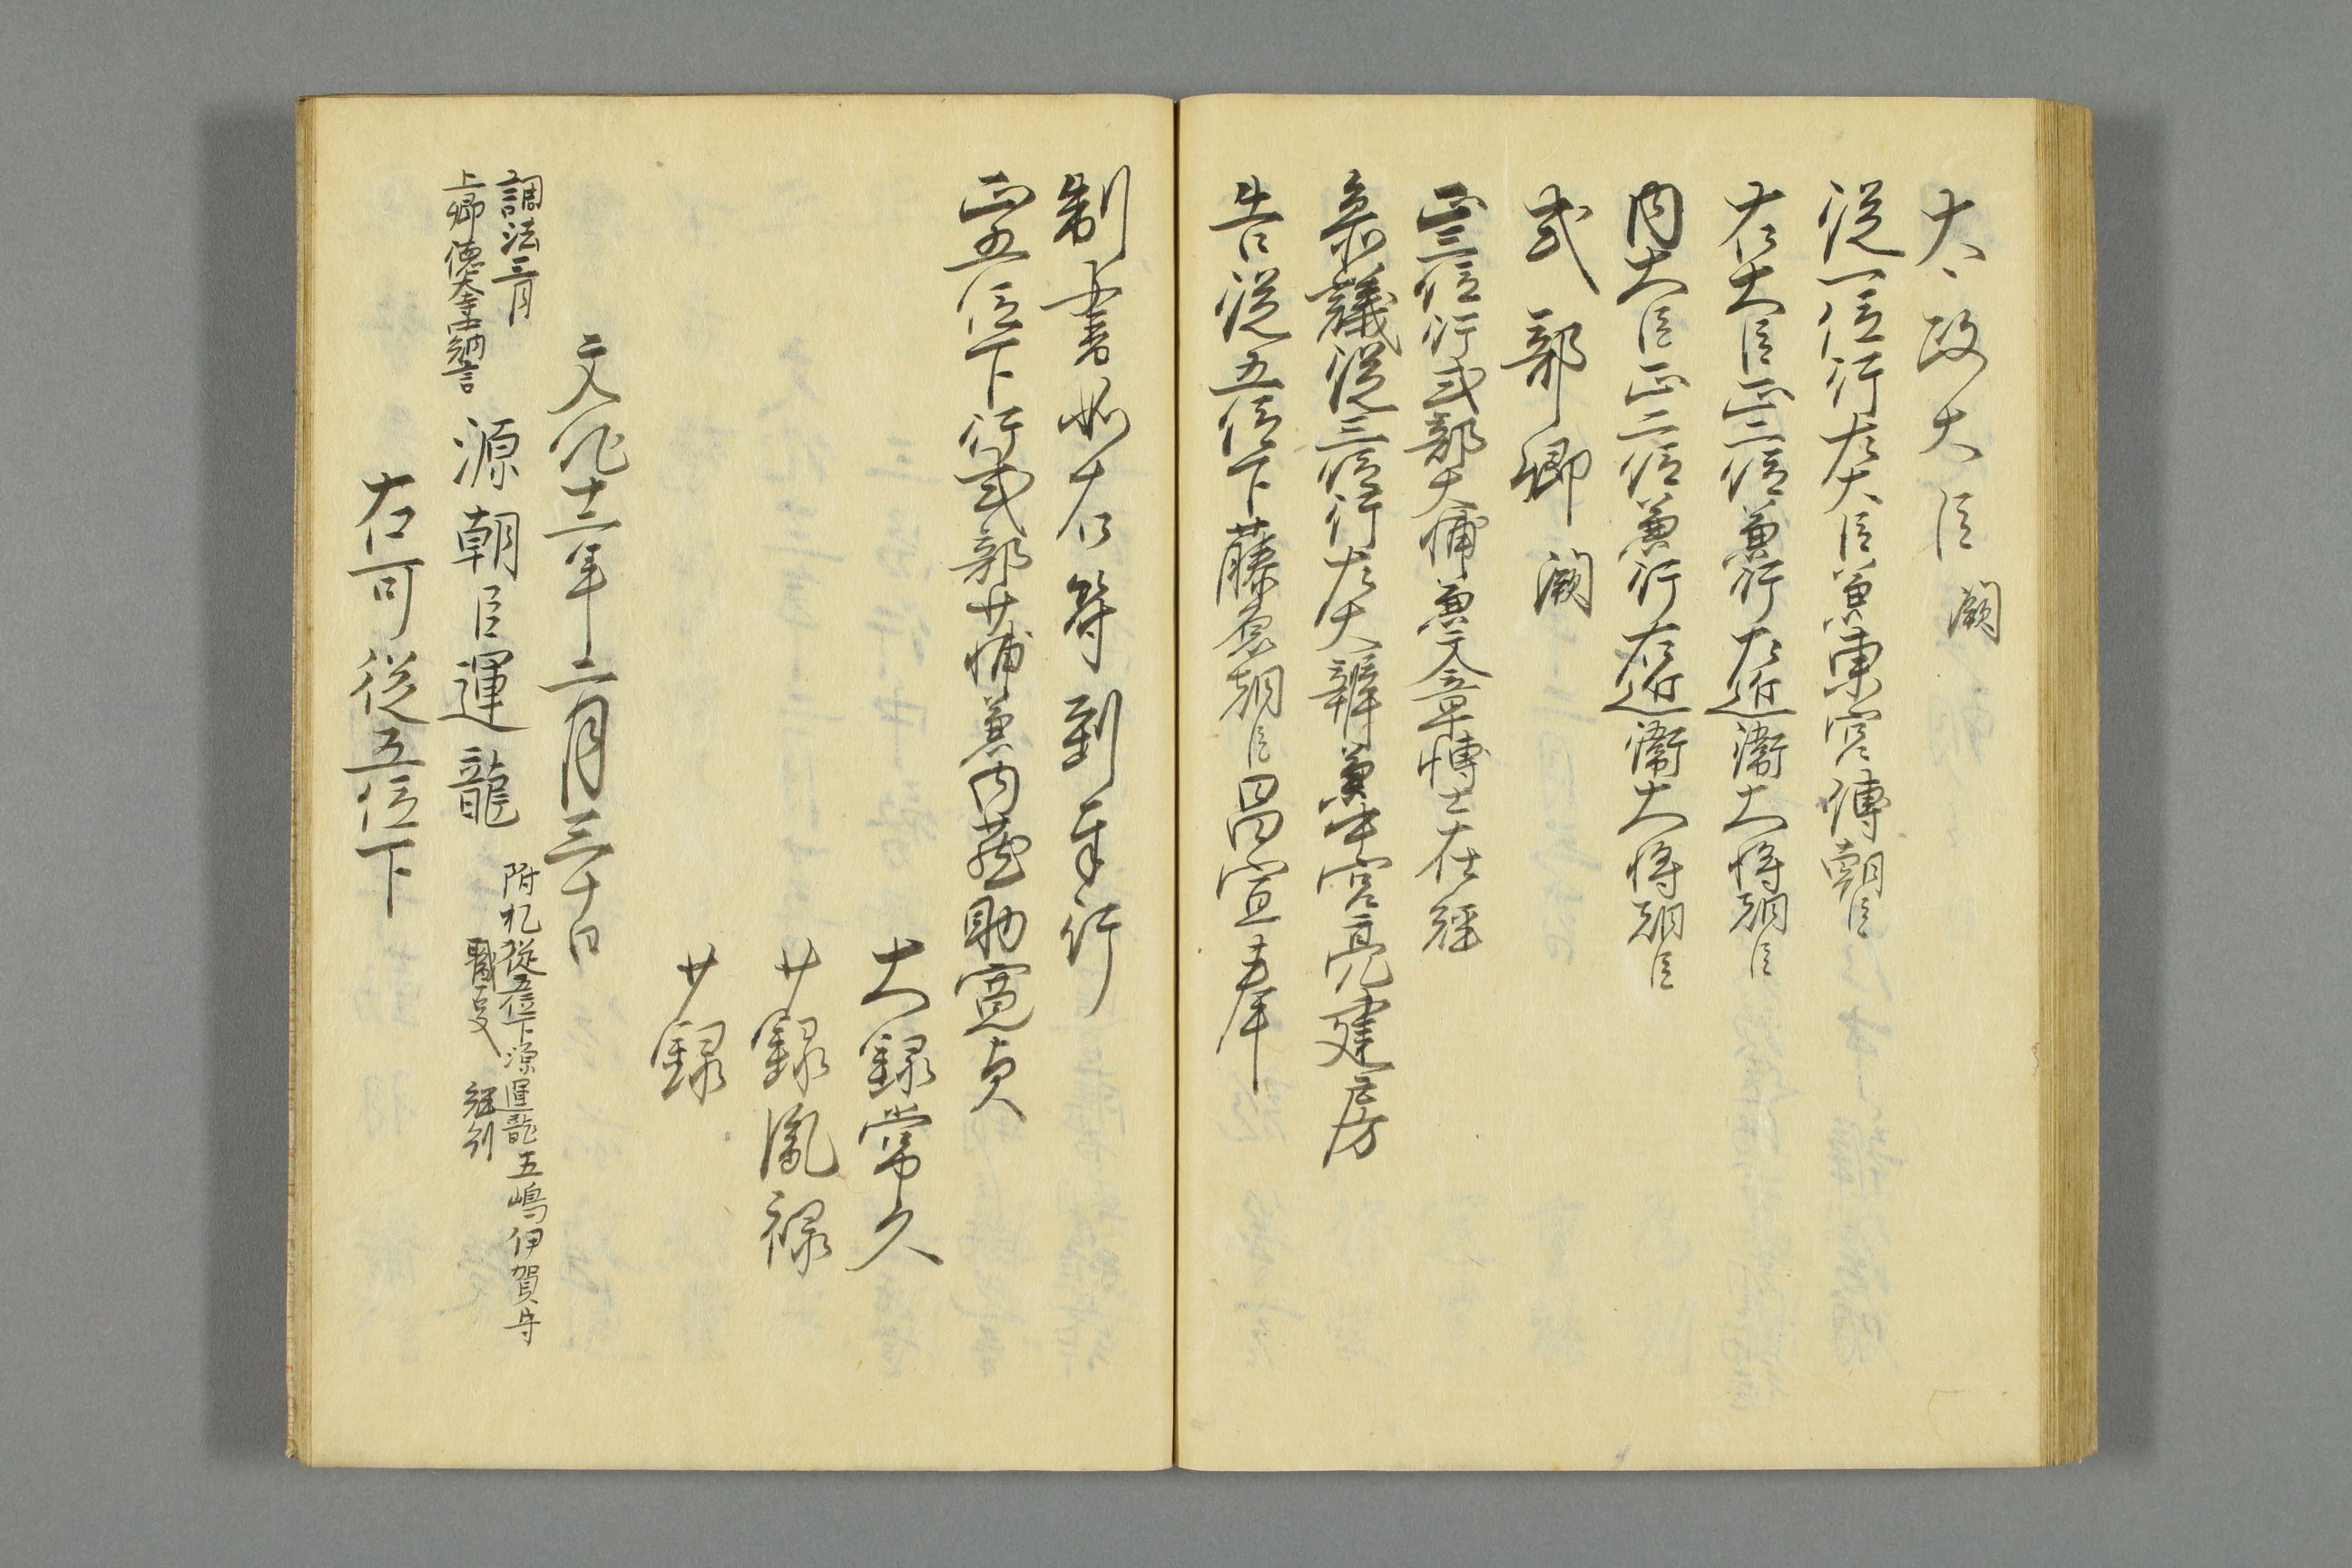 太政大臣闕
従一位行左大臣兼東宮傅朝臣
右大臣正二位兼行左近衛大将朝臣
内大臣正二位兼行右近衛大将朝臣
式部卿闕
正三位行式部大輔兼文章博士在経
参議従三位行左大辨兼中宮亮建房
告従五位下藤原朝臣昌宣奉
制書如右符到奉行
正五位下行式部少輔兼内蔵助寛貞
大録常久
少録胤禄
少録
文化十二年二月三十日
調法三月
上卿徳大寺中納言
源朝臣運龍
附札従五位下源運龍五嶋伊賀守
右可従五位下